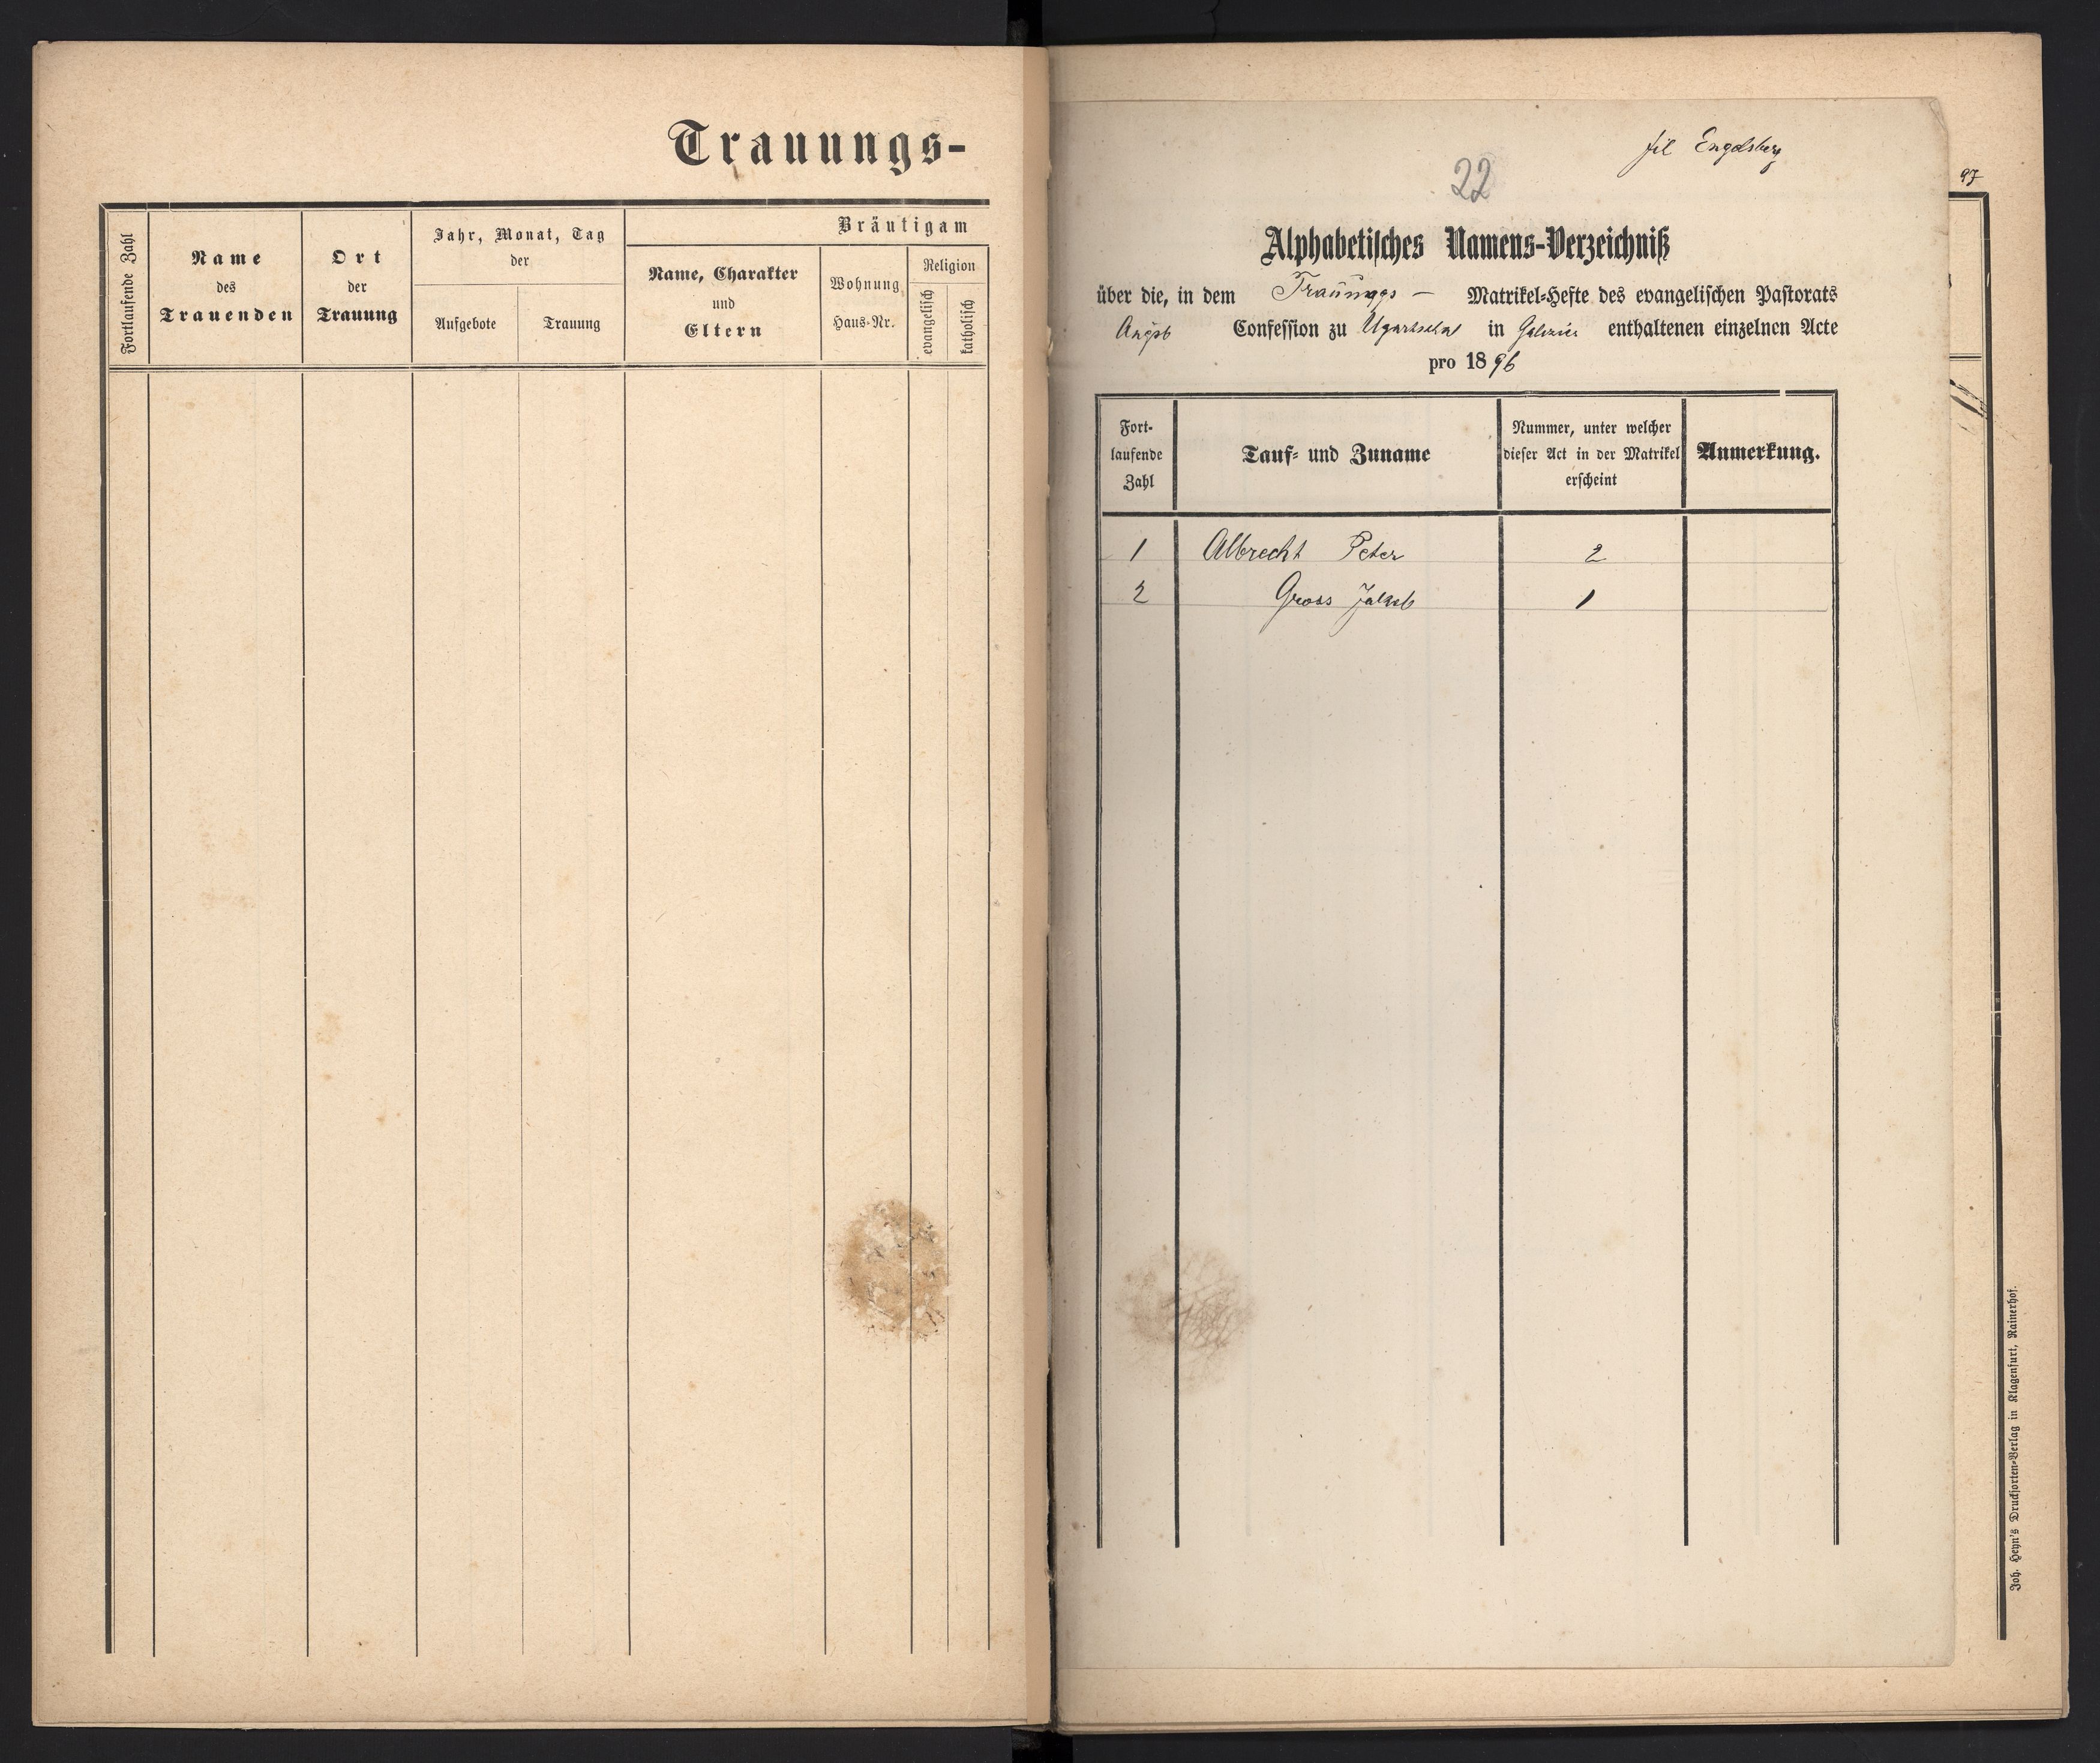 Trauungs-
Fortlaufende Zahl
Name
des
Trauenden
Ort
der
Trauung
Jahr, Monat, Tag
der
Aufgebote
Trauung
Bräutigam
Name, Charakter
und
Eltern
Wohnung
Haus-Nr.
Religion
evangelisch
katholisch
fil Engelsberg
22
97
Alphabetisches Namens-Verzeichniß
über die, in dem Trauungs- Matrikel-Hefte des evangelischen Pastorats
Augsb Confession zu Ugartsthal in Galizien enthaltenen einzelnen Acte
pro 1896
Fort-
laufende
Zahl
Tauf- und Zuname
Nummer, unter welcher
dieser Act in der Matrikel
erscheint
Anmerkung.
1 Albrecht Peter 2
2 Gross Jakob 1
Joh. Heyn's Drucksorten-Verlag in Klagenfurt, Rainerhof.